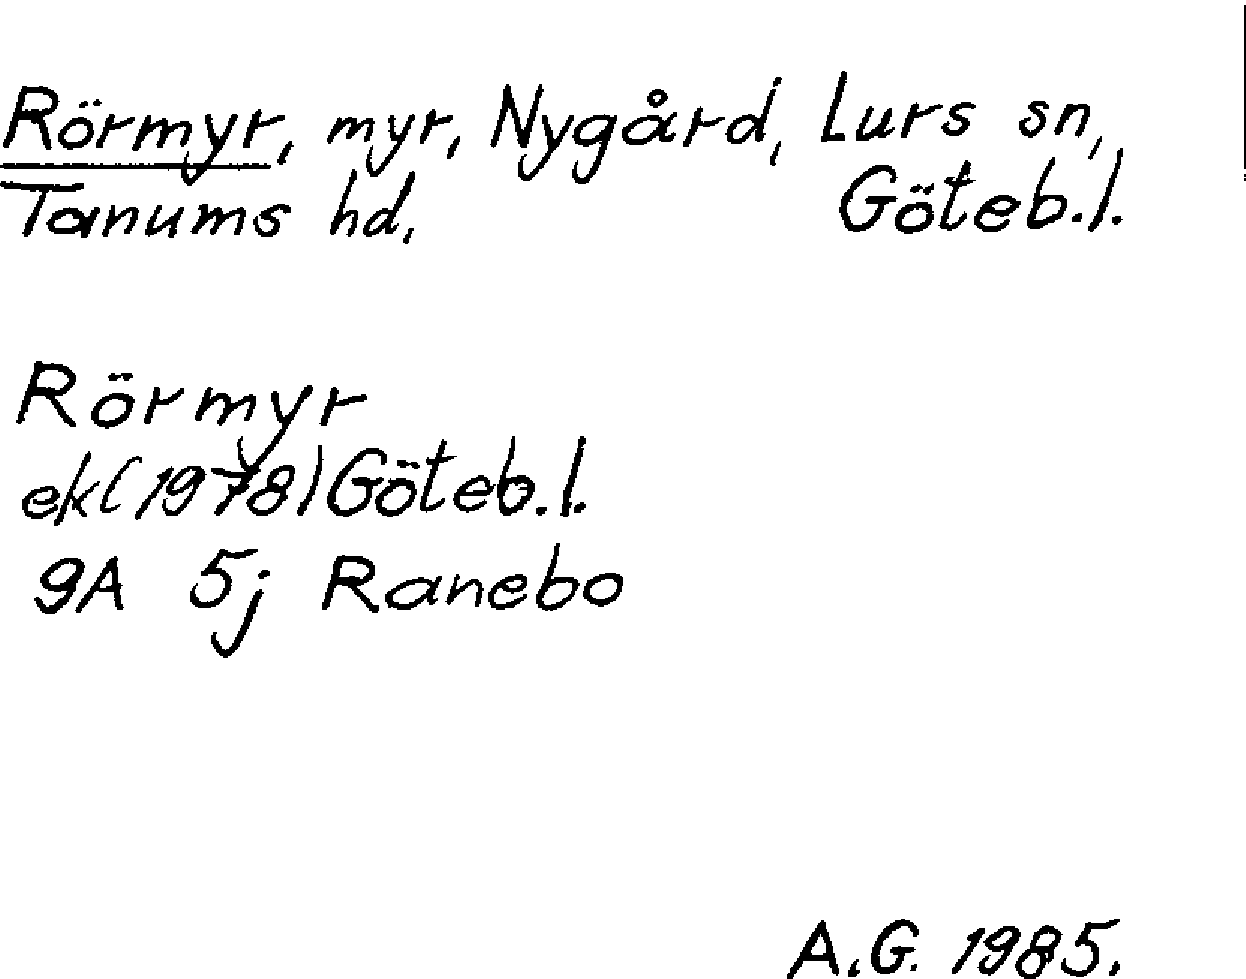 Rörmyr, myr, Nygård, Lurs sn,
Tanums hd, Göteb.l.
Rörmyr
ek(1978)Göteb.l.
9A 5j Ranebo
A.G. 1985.